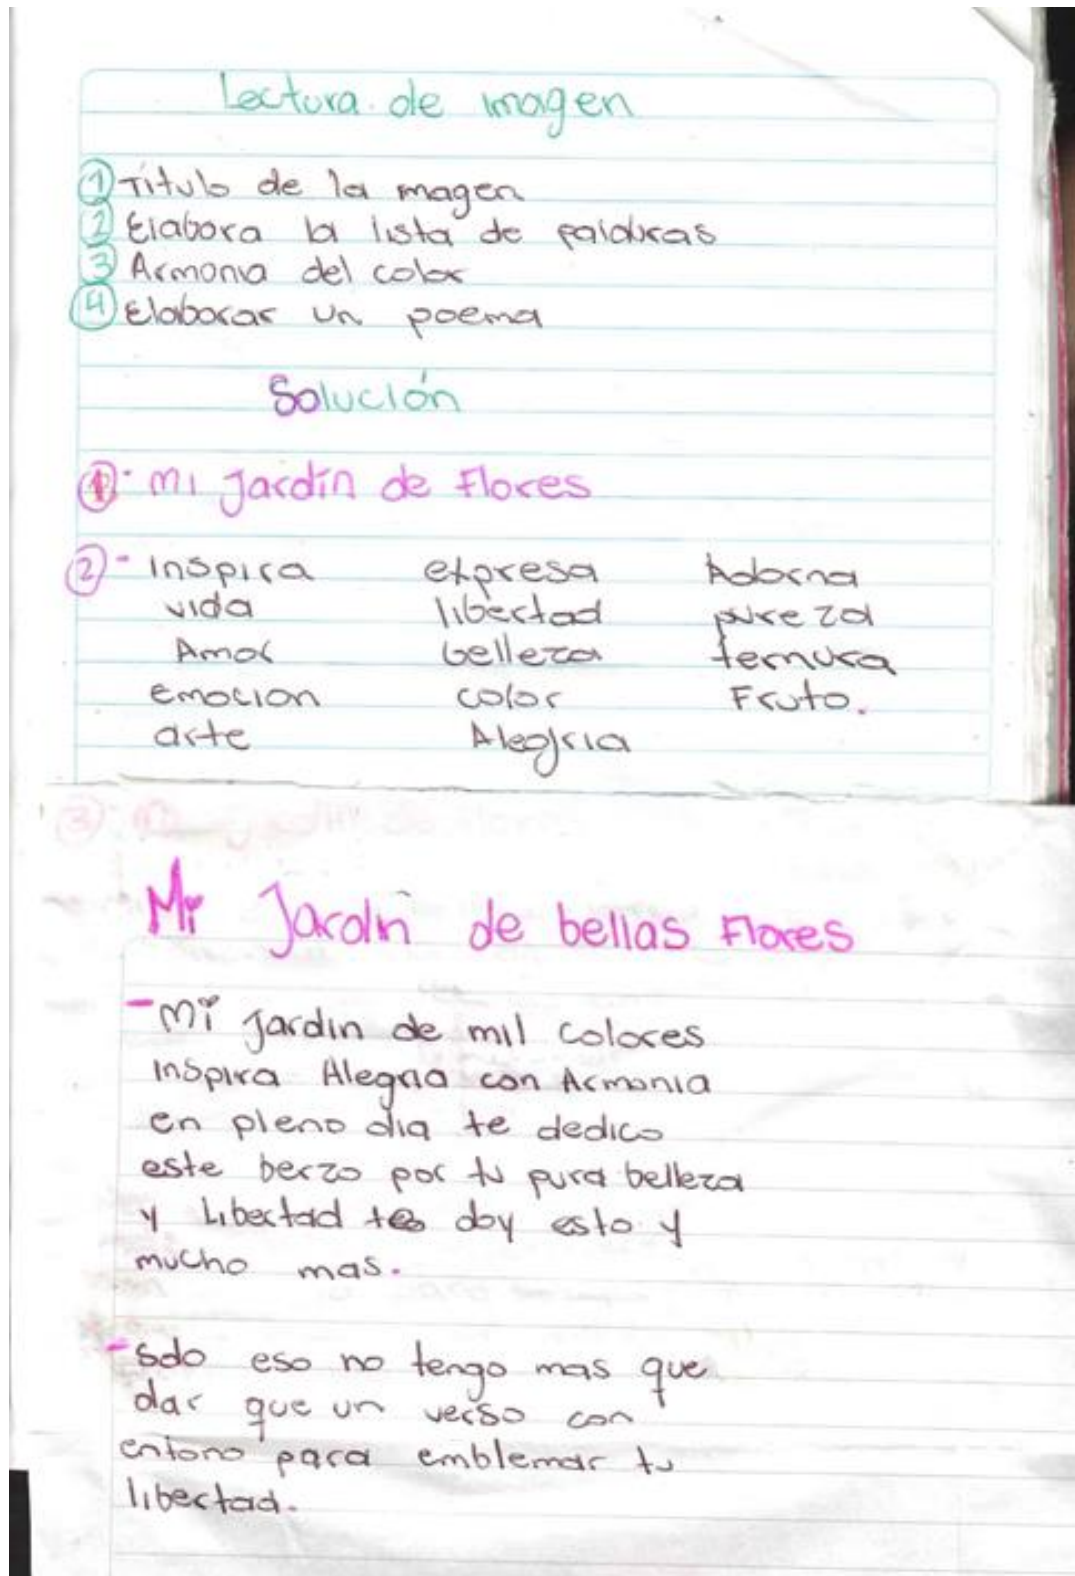 Lectura de imagen
1 Titulo de la magen
2 Elabora la lista de palabras
3 Armonia del color
4 Elaborar un poema
Solución
1 - mi Jardín de Flores
2 - inspira expresa Adorna
vida libertad pureza
Amor belleza ternura
emocion color Fruto.
arte Alegria
3
Mi Jardin de bellas Flores
- Mi Jardin de mil colores
inspira Alegria con Armonia
en pleno dia te dedico
este berzo por tu pura belleza
y Libertad te doy esto y
mucho mas.
- Solo eso no tengo mas que
dar que un verso con
entono para emblemar tu
libertad.